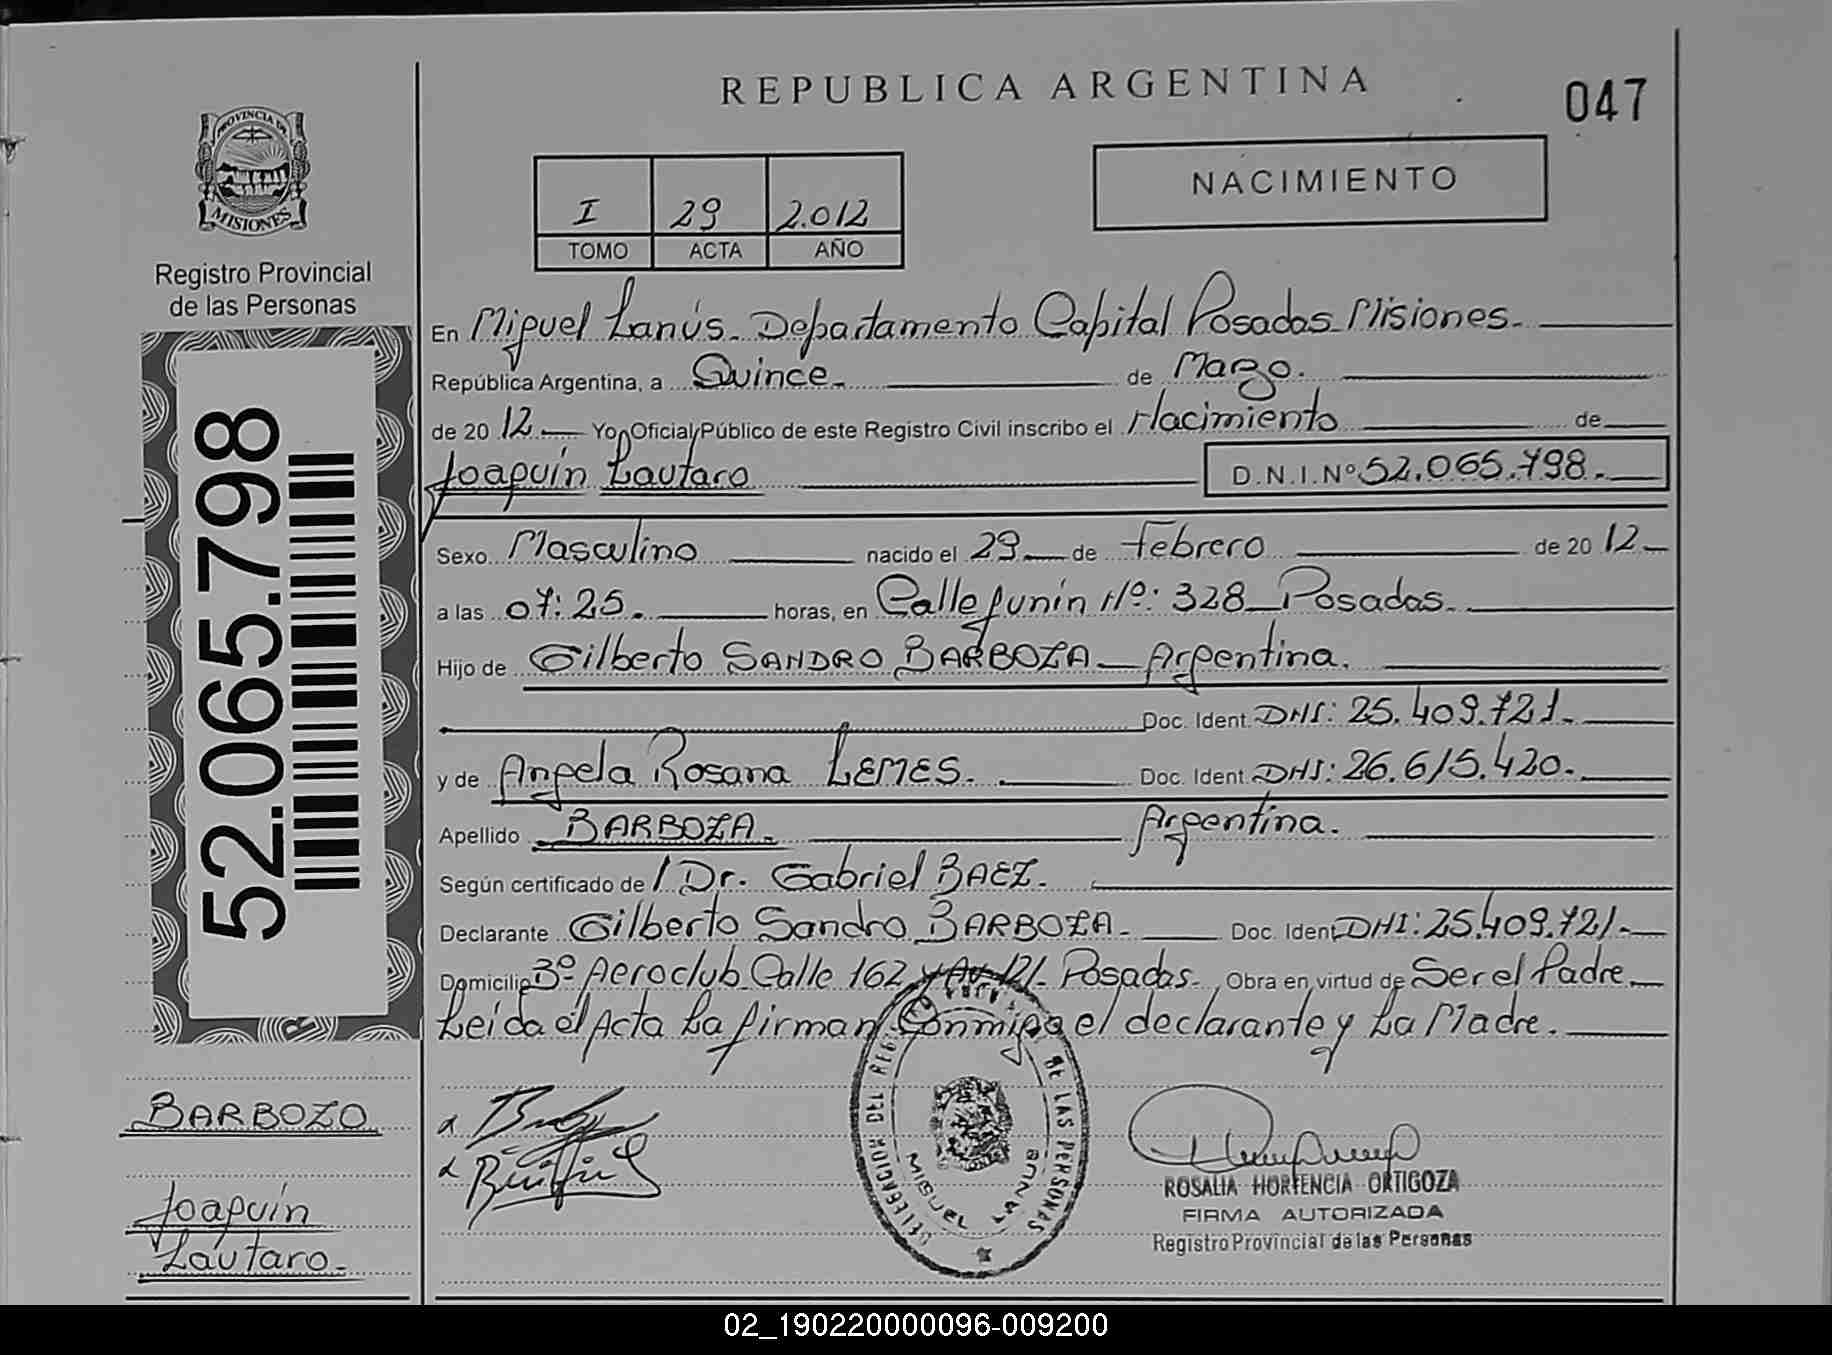 REPUBLICA ARGENTINA
047
PROVINCIA DE
MISIONES
Registro Provincial
de las Personas
52.065.798
I 29 2.012
TOMO ACTA AÑO
NACIMIENTO
En Miguel Lanús. Departamento Capital Posadas Misiones.
República Argentina, a Quince. de Marzo.
de 20 12. Yo, Oficial Público de este Registro Civil inscribo el Nacimiento de
Joaquín Lautaro D.N.I.Nº 52.065.798.
Sexo Masculino nacido el 29 de Febrero de 20 12
a las 07:25. horas, en Calle Junín Nº: 328 Posadas.
Hijo de Gilberto SANDRO BARBOZA Argentina.
Doc. Ident. DNI: 25.409.721.
y de Angela Rosana LEMES. Doc. Ident. DNI: 26.615.420.
Apellido BARBOZA. Argentina.
Según certificado de / Dr. Gabriel BAEZ.
Declarante Gilberto Sandro BARBOZA. Doc. Iden. DNI: 25.409.721.
Domicilio Bº Aeroclub Calle 162 y Av 121. Posadas. Obra en virtud de Ser el Padre
Leída el Acta La firman Conmigo el declarante y La Madre.
BARBOZO
Joaquín
Lautaro.
DELEGACION DEL REGISTRO DE LAS PERSONAS
MIGUEL LANUS
ROSALIA HORTENCIA ORTIGOZA
FIRMA AUTORIZADA
Registro Provincial de las Personas
02_190220000096-009200